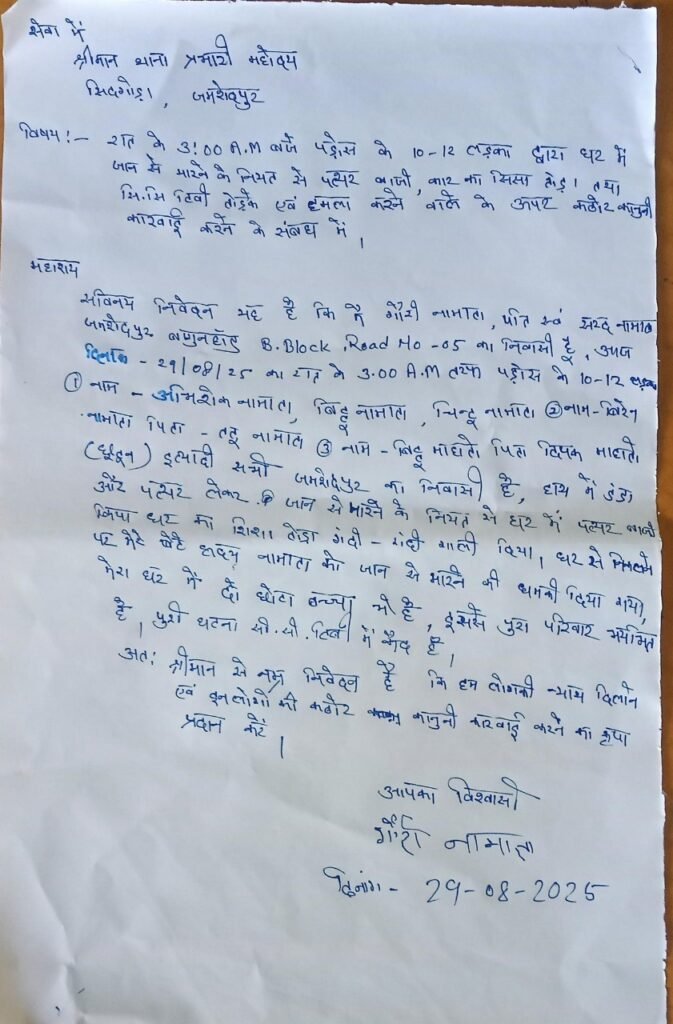 सेवा में
श्रीमान थाना प्रभारी महोदय
सिदगोड़ा, जमशेदपुर
विषय:- रात के 3:00 A.M बजे पड़ोस के 10-12 लड़का द्वारा घर में
जान से मारने के नियत से पत्थर बाजी, कार का सिसा तोड़ा तथा
सि.सि टिवी तोड़ने एवं हमला करने वाले के ऊपर कठोर कानुनी
कारवाई करने के संबध में।
महाशय
सविनय निवेदन यह है कि मैं गौरी नामाता, पति स्वं शरद नामाता
जमशेदपुर बागुनहातु B.Block Road No -05 का निवासी हूँ, आज
दिनांक - 29/08/25 का रात के 3:00 A.M तथा पड़ोस के 10-12 लड़का
① नाम - अभिशेक नामाता, बिट्टू नामाता, चिन्टू नामाता ② नाम - बिरेन
नामाता पिता - लालू नामाता ③ नाम - बिट्टू माहातो पिता दिपक माहातो
इत्यादी सभी जमशेदपुर का निवासी है, हाथ में डंडा
और पत्थर लेकर जान से मारने के नियत से घर में पत्थर बाजी
किया घर का शिशा तोड़ा गंदी - गंदी गाली दिया, घर से निकलने
पर मेरे बेटे हृदय नामाता को जान से मारने की धमकी दिया गया,
मेरा घर में दो छोटा बच्चा भी है, इससे पुरा परिवार भयभित
है, पुरी घटना सी.सी.टिवी में कैद है।
अतः श्रीमान से नम्र निवेदन है कि हम लोगको न्याय दिलाने
एवं इनलोगो की कठोर कानुनी कारवाई करने का कृपा
प्रदान करें।
आपका विश्वासी
गौरी नामाता
दिनांग - 29-08-2025